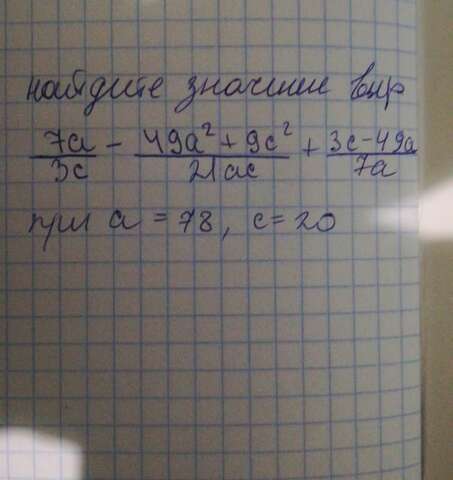 найдите значение выр
7a/3c - 49a²+9c²/21ac + 3c-49a/7a
при a = 78, c = 20